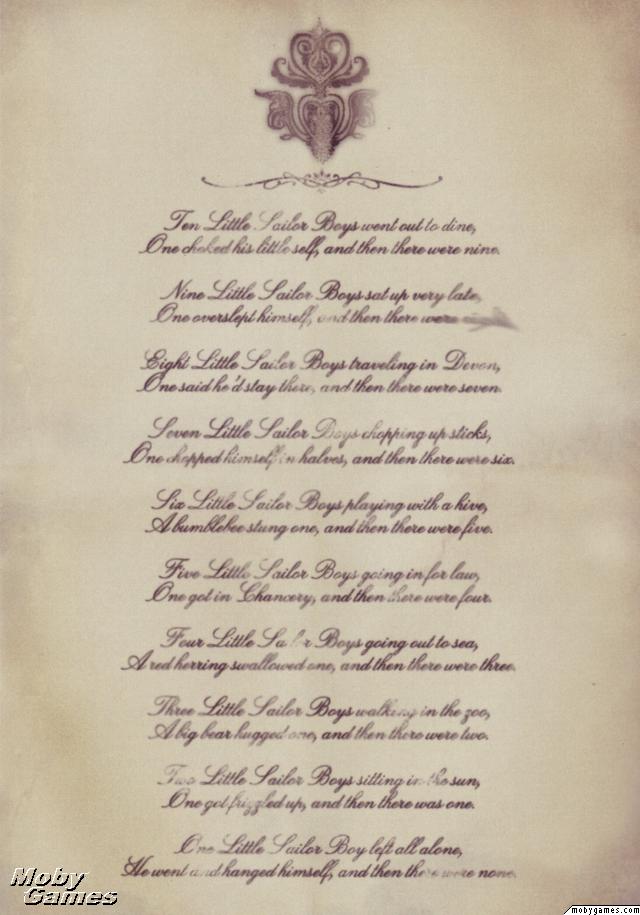 Ten Little Sailor Boys went out to dine,
One choked his little self, and then there were nine.
Nine Little Sailor Boys sat up very late,
One overslept himself, and then there were
Eight Little Sailor Boys traveling in Devon,
One said he'd stay there, and then there were seven.
Seven Little Sailor Boys chopping up sticks,
One chopped himself in halves, and then there were six.
Six Little Sailor Boys playing with a hive,
A bumblebee stung one, and then there were five.
Five Little Sailor Boys going in for law,
One got in Chancery, and then there were four.
Four Little Sailor Boys going out to sea,
A red herring swallowed one, and then there were three.
Three Little Sailor Boys walking in the zoo,
A big bear hugged one, and then there were two.
Two Little Sailor Boys sitting in the sun,
One got frizzled up, and then there was one.
One Little Sailor Boy left all alone,
He went and hanged himself, and then there were none.
Moby
Games
mobygames.com